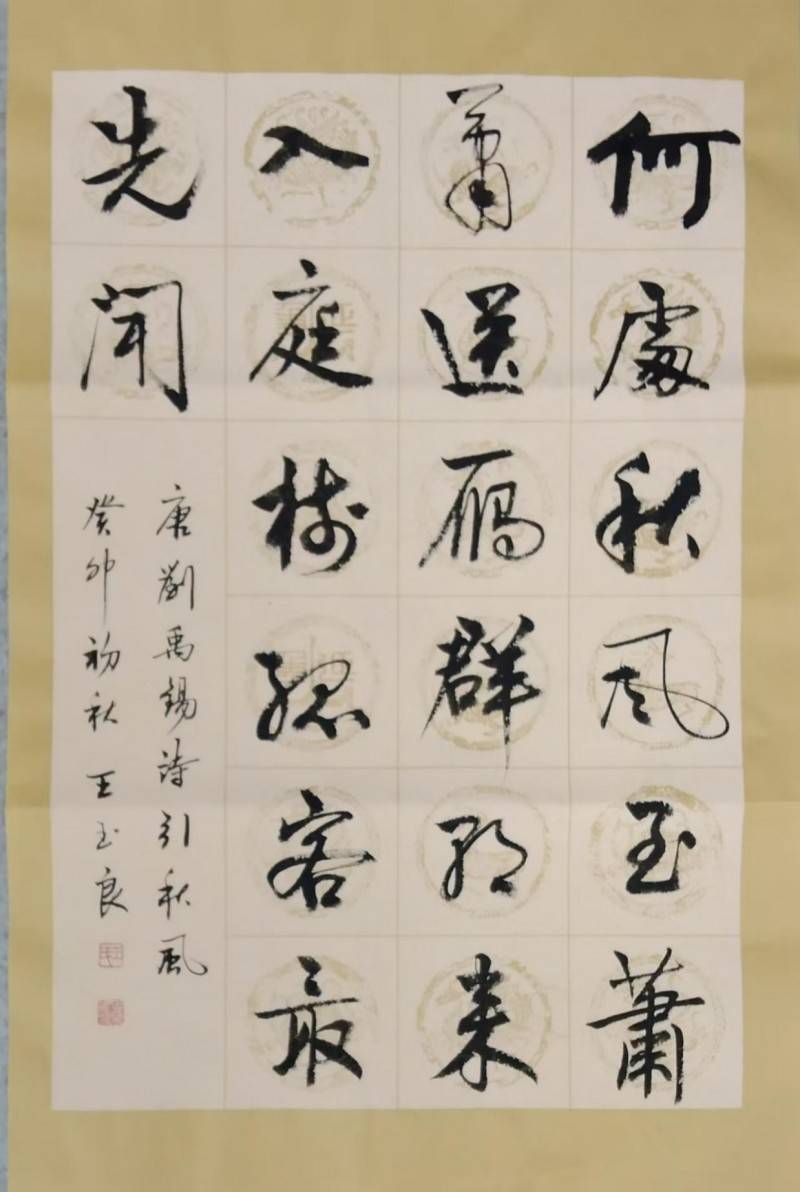 何處秋風至蕭
蕭送鴈群朝来
入庭樹孤客最
先聞
唐劉禹錫詩引秋風
癸卯初秋王玉良